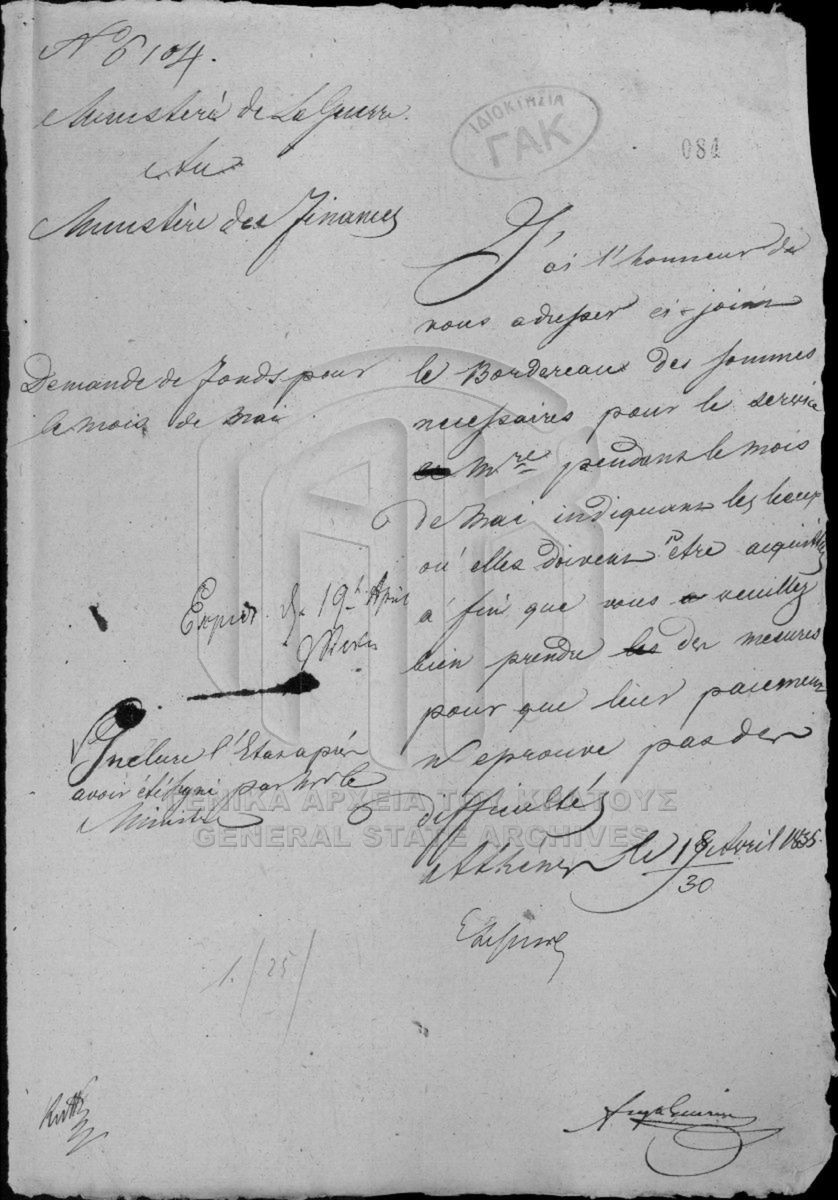 No 6104.
Ministère de La Guerre
Au
Ministère des Finances
ΙΔΙΟΚΤΗΣΙΑ
ΓΑΚ
084
Demande de fonds pour
le mois de Mai
J'ai l'honneur de
vous adresser ci-joint
le Bordereau des sommes
necessaires pour le service
Mre pendant le mois
de Mai indiquant les lieux
où elles doivent être acquittées
à fin que vous veuillez
bien prendre des mesures
pour que leur paiement
n'eprouve pas de
difficultés
Athènes le 18/30 Avril 1835
19 April
Inclure l'Etat après
avoir été signé par Mr le
Ministre
ΓΕΝΙΚΑ ΑΡΧΕΙΑ ΤΟΥ ΚΡΑΤΟΥΣ
GENERAL STATE ARCHIVES
1./25/